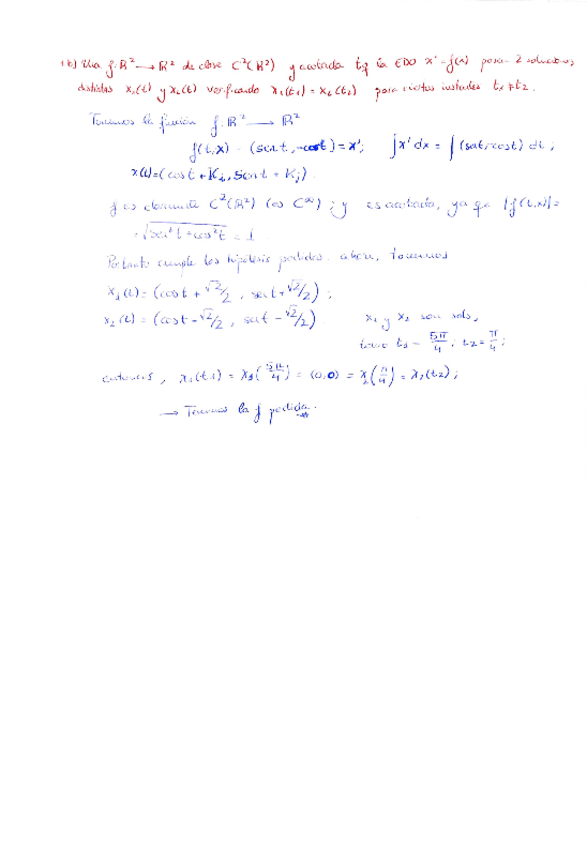 1b) Una f: ℝ² → ℝ² de clase C²(ℝ²) y acotada t.q la EDO x' = f(x) posea 2 soluciones
distintas x₁(t) y x₂(t) verificando x₁(t₁) = x₂(t₂) para ciertos instantes t₁ ≠ t₂.
Tenemos la función f: ℝ² → ℝ²
f(t,x) = (sen t, -cos t) = x'; ∫x' dx = ∫(sen t, cos t) dt;
x(t) = (cos t + Kᵢ, sen t + Kⱼ).
f es claramente C²(ℝ²) (es C^∞); y es acotada, ya que |f(t,x)| =
= √(sen² t + cos² t = 1.
Por tanto cumple las hipótesis pedidas. ahora, tenemos
x₁(t) = (cos t + √2/2, sen t + √2/2);
x₂(t) = (cos t - √2/2, sen t - √2/2). x₁ y x₂ son sols,
tomo t₁ = 5π/4; t₂ = π/4;
entonces, x₁(t₁) = x₁(5π/4) = (0,0) = x₂(π/4) = x₂(t₂);
→ Tenemos la f pedida.